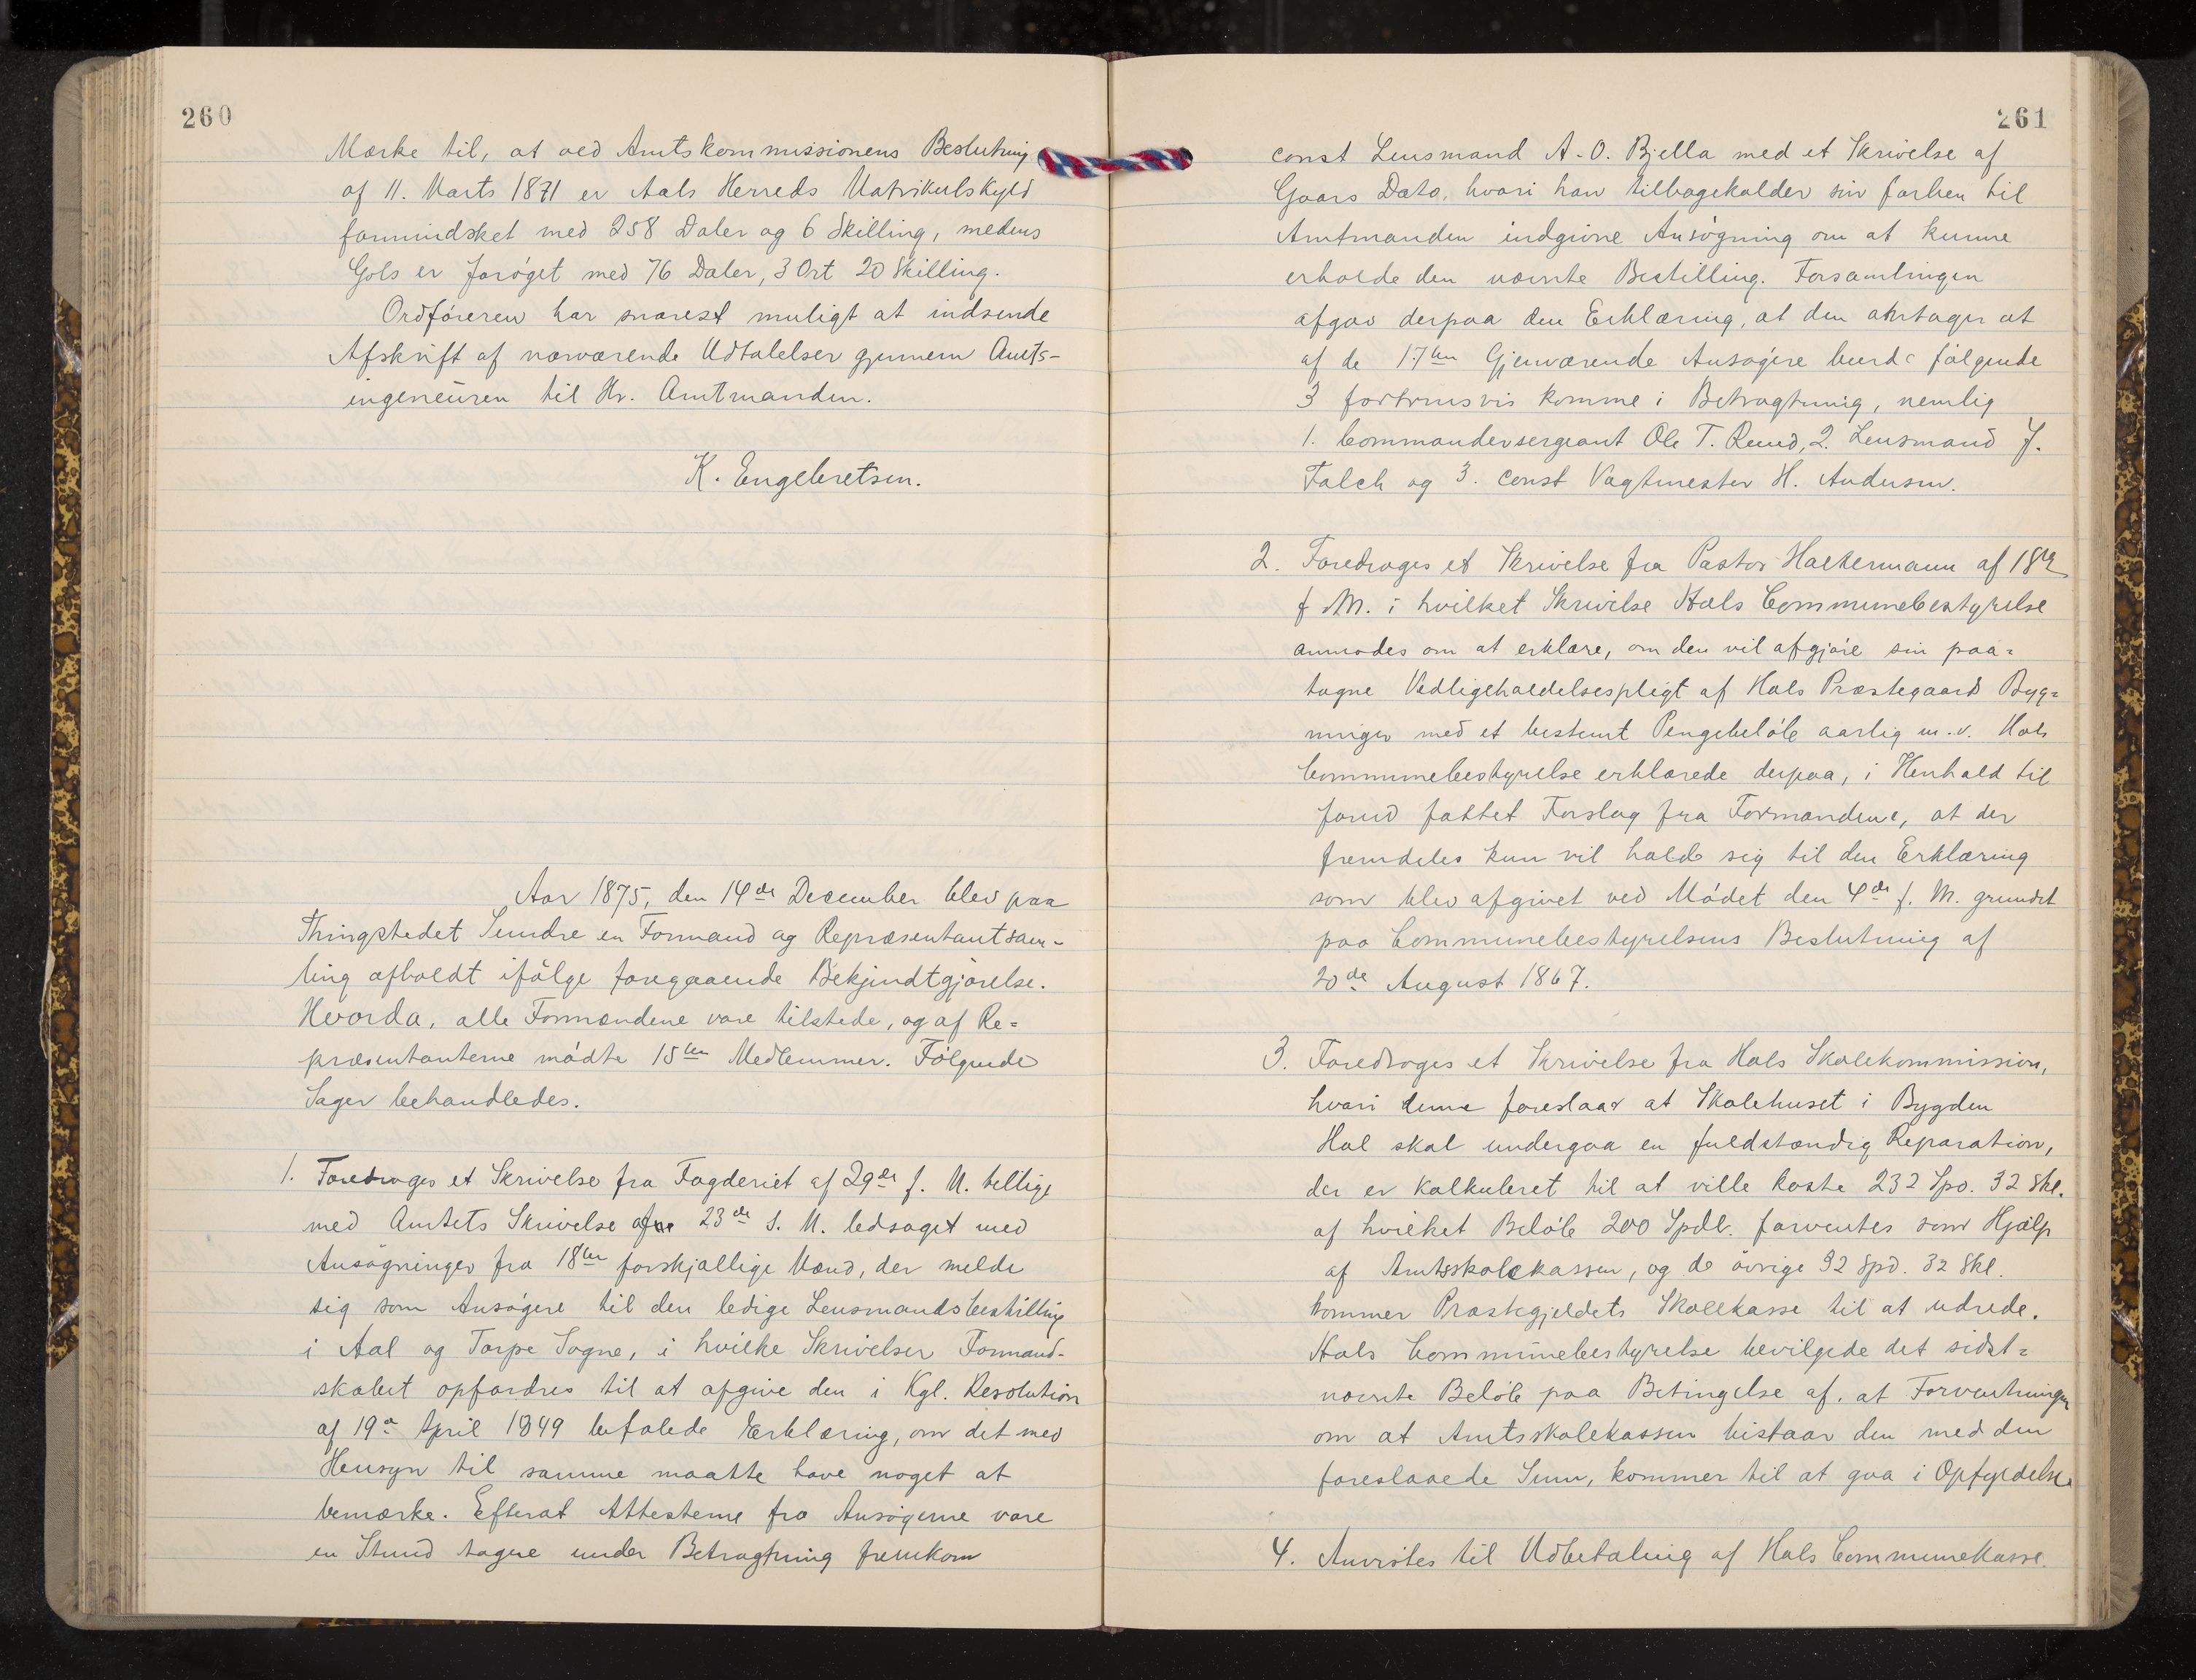 260
Mærke til, at ved Amtskommissionens Beslutning
af 11. Marts 1871 er Aals Herreds Matrikulskyld
formindsket med 258 Daler og 6 Skilling, medens
Gols er forøget med 76 Daler, 3 Ort 20 Skilling.
Ordføreren har snarest muligt at indsende
Afskrift af nærværende Udtalelser gjennem Amts-
ingeneuren til Hr. Amtmanden.
K. Engebretsen.
Aar 1875, den 14de December blev paa
Thingstedet Sundre en Formand og Repræsentantsam-
ling afholdt ifølge foregaaende Bekjendtgjørelse.
Hvorda, alle Formændene vare tilstede, og af Re=
præsentanterne mødte 15ten Medlemmer. Følgende
Sager behandledes.
1. Foredroges et Skrivelse fra Fogderiet af 29de f. M. tillige
med Amtets Skrivelse af 23de s. M. ledsaget med
Ansøgninger fra 18ten forskjællige Mænd, der melde
sig som Ansøgere til den ledige Lensmandsbestilling
i Aal og Torpe Sogne, i hvilke Skrivelser Formand-
skabet opfordres til at afgive den i Kgl. Resolution
af 19a April 1849 befalede Erklæring, om det med
Hensyn til samme maatte have noget at
bemærke. Efterat Attesterne fra Ansøgerne vare
en Stund tagne under Betragtning fremkom
261
const Lensmand A. O. Bjella med et Skrivelse af
Gaars Dato, hvori han tilbagekalder sin forhen til
Amtmanden indgivne Ansøgning om at kunne
erholde den nævnte Bestilling. Forsamlingen
afgav derpaa den Erklæring, at den antager at
af de 17ten Gjenværende Ansøgere burde følgende
3 fortrinsvis komme i Betragtning, nemlig
1. Commandersergeant Ole T. Ruud, 2. Lensmand J.
Falch og 3. const Vagtmester H. Andersen.
2. Foredroges et Skrivelse fra Pastor Halkermann af 18de
f. M. i hvilket Skrivelse Hols Communebestyrelse
anmodes om at erklære, om den vil afgjøre sin paa=
tagne Vedligeholdelsespligt af Hols Præstegaards Byg=
ninger med et bestemt Pengebeløb aarlig m.v. Hols
Communebestyrelse erklærede derpaa, i Henhold til
forud fattet Forslag fra Formændene, at den
fremdeles kun vil holde sig til den Erklæring
som blev afgivet ved Mødet den 4de f. M. grundet
paa Communebestyrelsens Beslutning af
20de August 1867.
3. Foredroges et Skrivelse fra Hols Skolekommission,
hvori denne foreslaar at Skolehuset i Bygden
Hol skal undergaa en fuldstændig Reparation,
der er kalkuleret til at ville koste 232 Spd. 32 Skl.
af hvilket Beløb 200 Spdl. forventes som Hjælp
af Amtsskolekassen, og de øvrige 32 Spd. 32 Skl.
kommer Præstegjeldets Skolekasse til at udrede.
Hols Communebestyrelse bevilgede det sidst=
nævnte Beløb paa Betingelse af, at Forventningen
om at Amtsskolekassen bistaar den med den
foreslaaede Sum, kommer til at gaa i Opfyldelse
4. Anvistes til Udbetaling af Hols Communekasse.